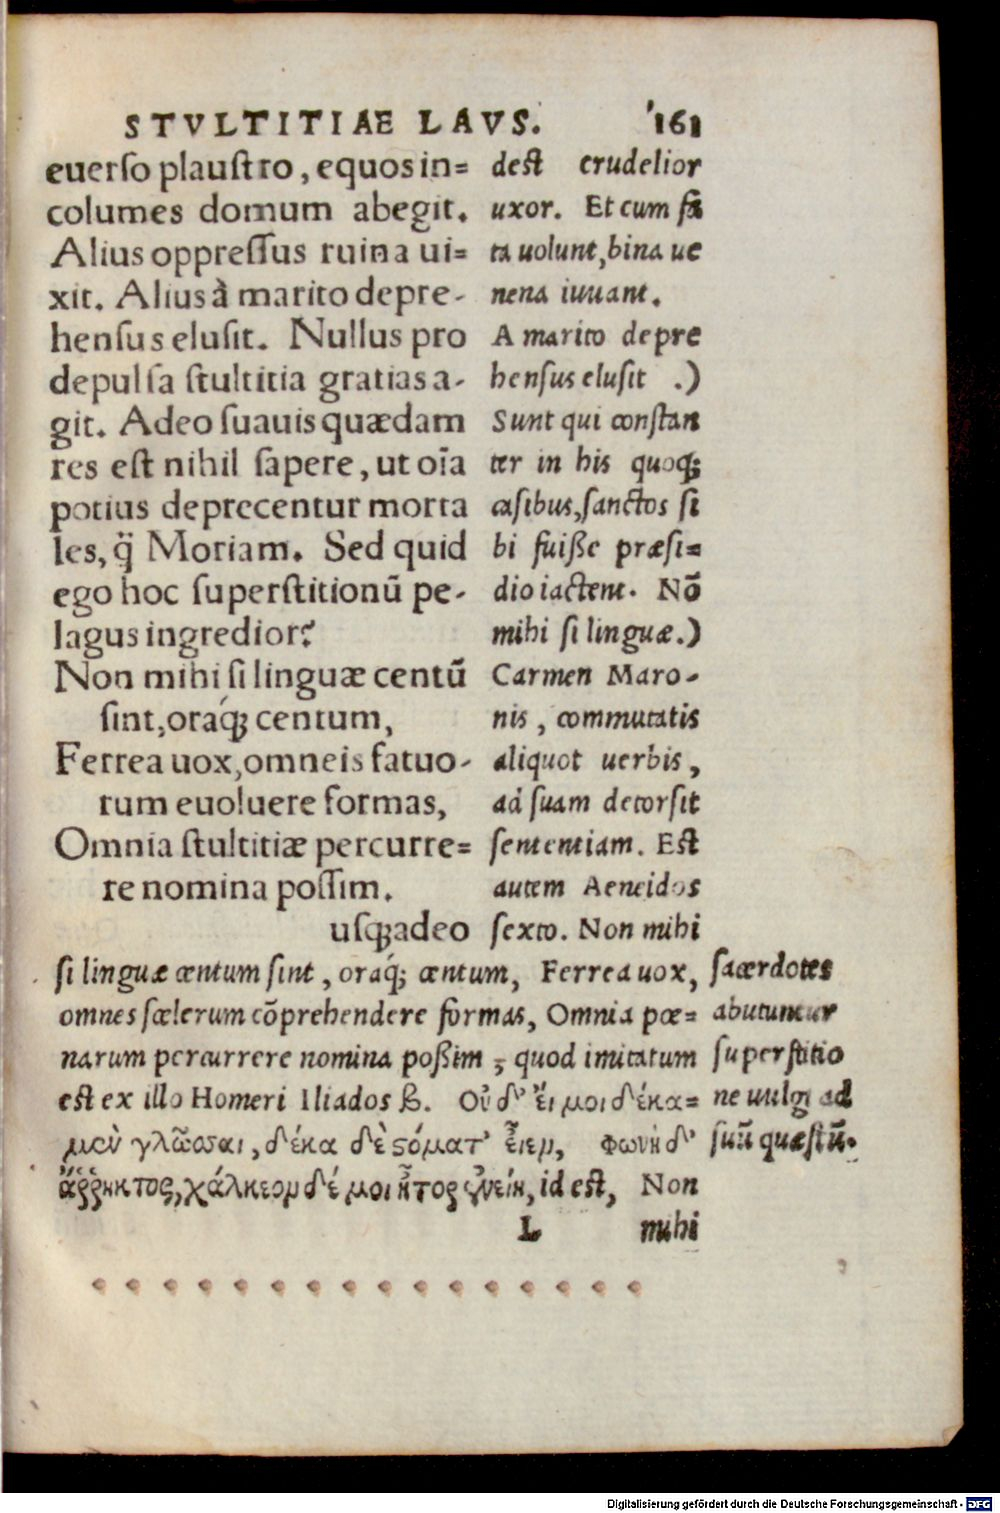 STVLTITIAE LAVS. 161
euerſo plauſtro, equos in=
columes domum abegit.
Alius oppreſſus ruina ui=
xit. Alius à marito depre-
henſus eluſit. Nullus pro
depulſa ſtultitia gratias a-
git. Adeo ſuauis quædam
res eſt nihil ſapere, ut oīa
potius deprecentur morta
les, q̈ Moriam. Sed quid
ego hoc ſuperſtitionū pe-
lagus ingredior?
Non mihi ſi linguæ centū
ſint, oraq́; centum,
Ferrea uox, omneis fatuo-
rum euoluere formas,
Omnia ſtultitiæ percurre=
re nomina poſſim.
uſq;adeo
deſt crudelior
uxor. Et cum fa
ta uolunt, bina ue
nena iuuant.
A marito depre
henſus eluſit .)
Sunt qui conſtan
ter in his quoq;
caſibus, ſanctos ſi
bi fuiße præſi=
dio iactent. Nō
mihi ſi linguæ.)
Carmen Maro-
nis, commutatis
aliquot uerbis,
ad ſuam detorſit
ſententiam. Eſt
autem Aeneidos
ſexto. Non mihi
ſi linguæ centum ſint, oraq́; centum, Ferrea uox,
omnes ſcelerum cōprehendere formas, Omnia pœ=
narum percurrere nomina poßim ; quod imitatum
eſt ex illo Homeri Iliados β. Οὐδ' εἴ μοι δέκα=
μεν γλῶσσαι, δέκα δὲ ϛόματ' εἶεν, φωνὴ δ'
ἄῤῥηκτος, χάλκεον δέ μοι ἦτορ ἐνείη, id eſt, Non
ſacerdotes
abutuntur
ſuperſtitio
ne uulgi ad
ſuū quæſtū.
L mihi
Digitalisierung gefördert durch die Deutsche Forschungsgemeinschaft - DFG